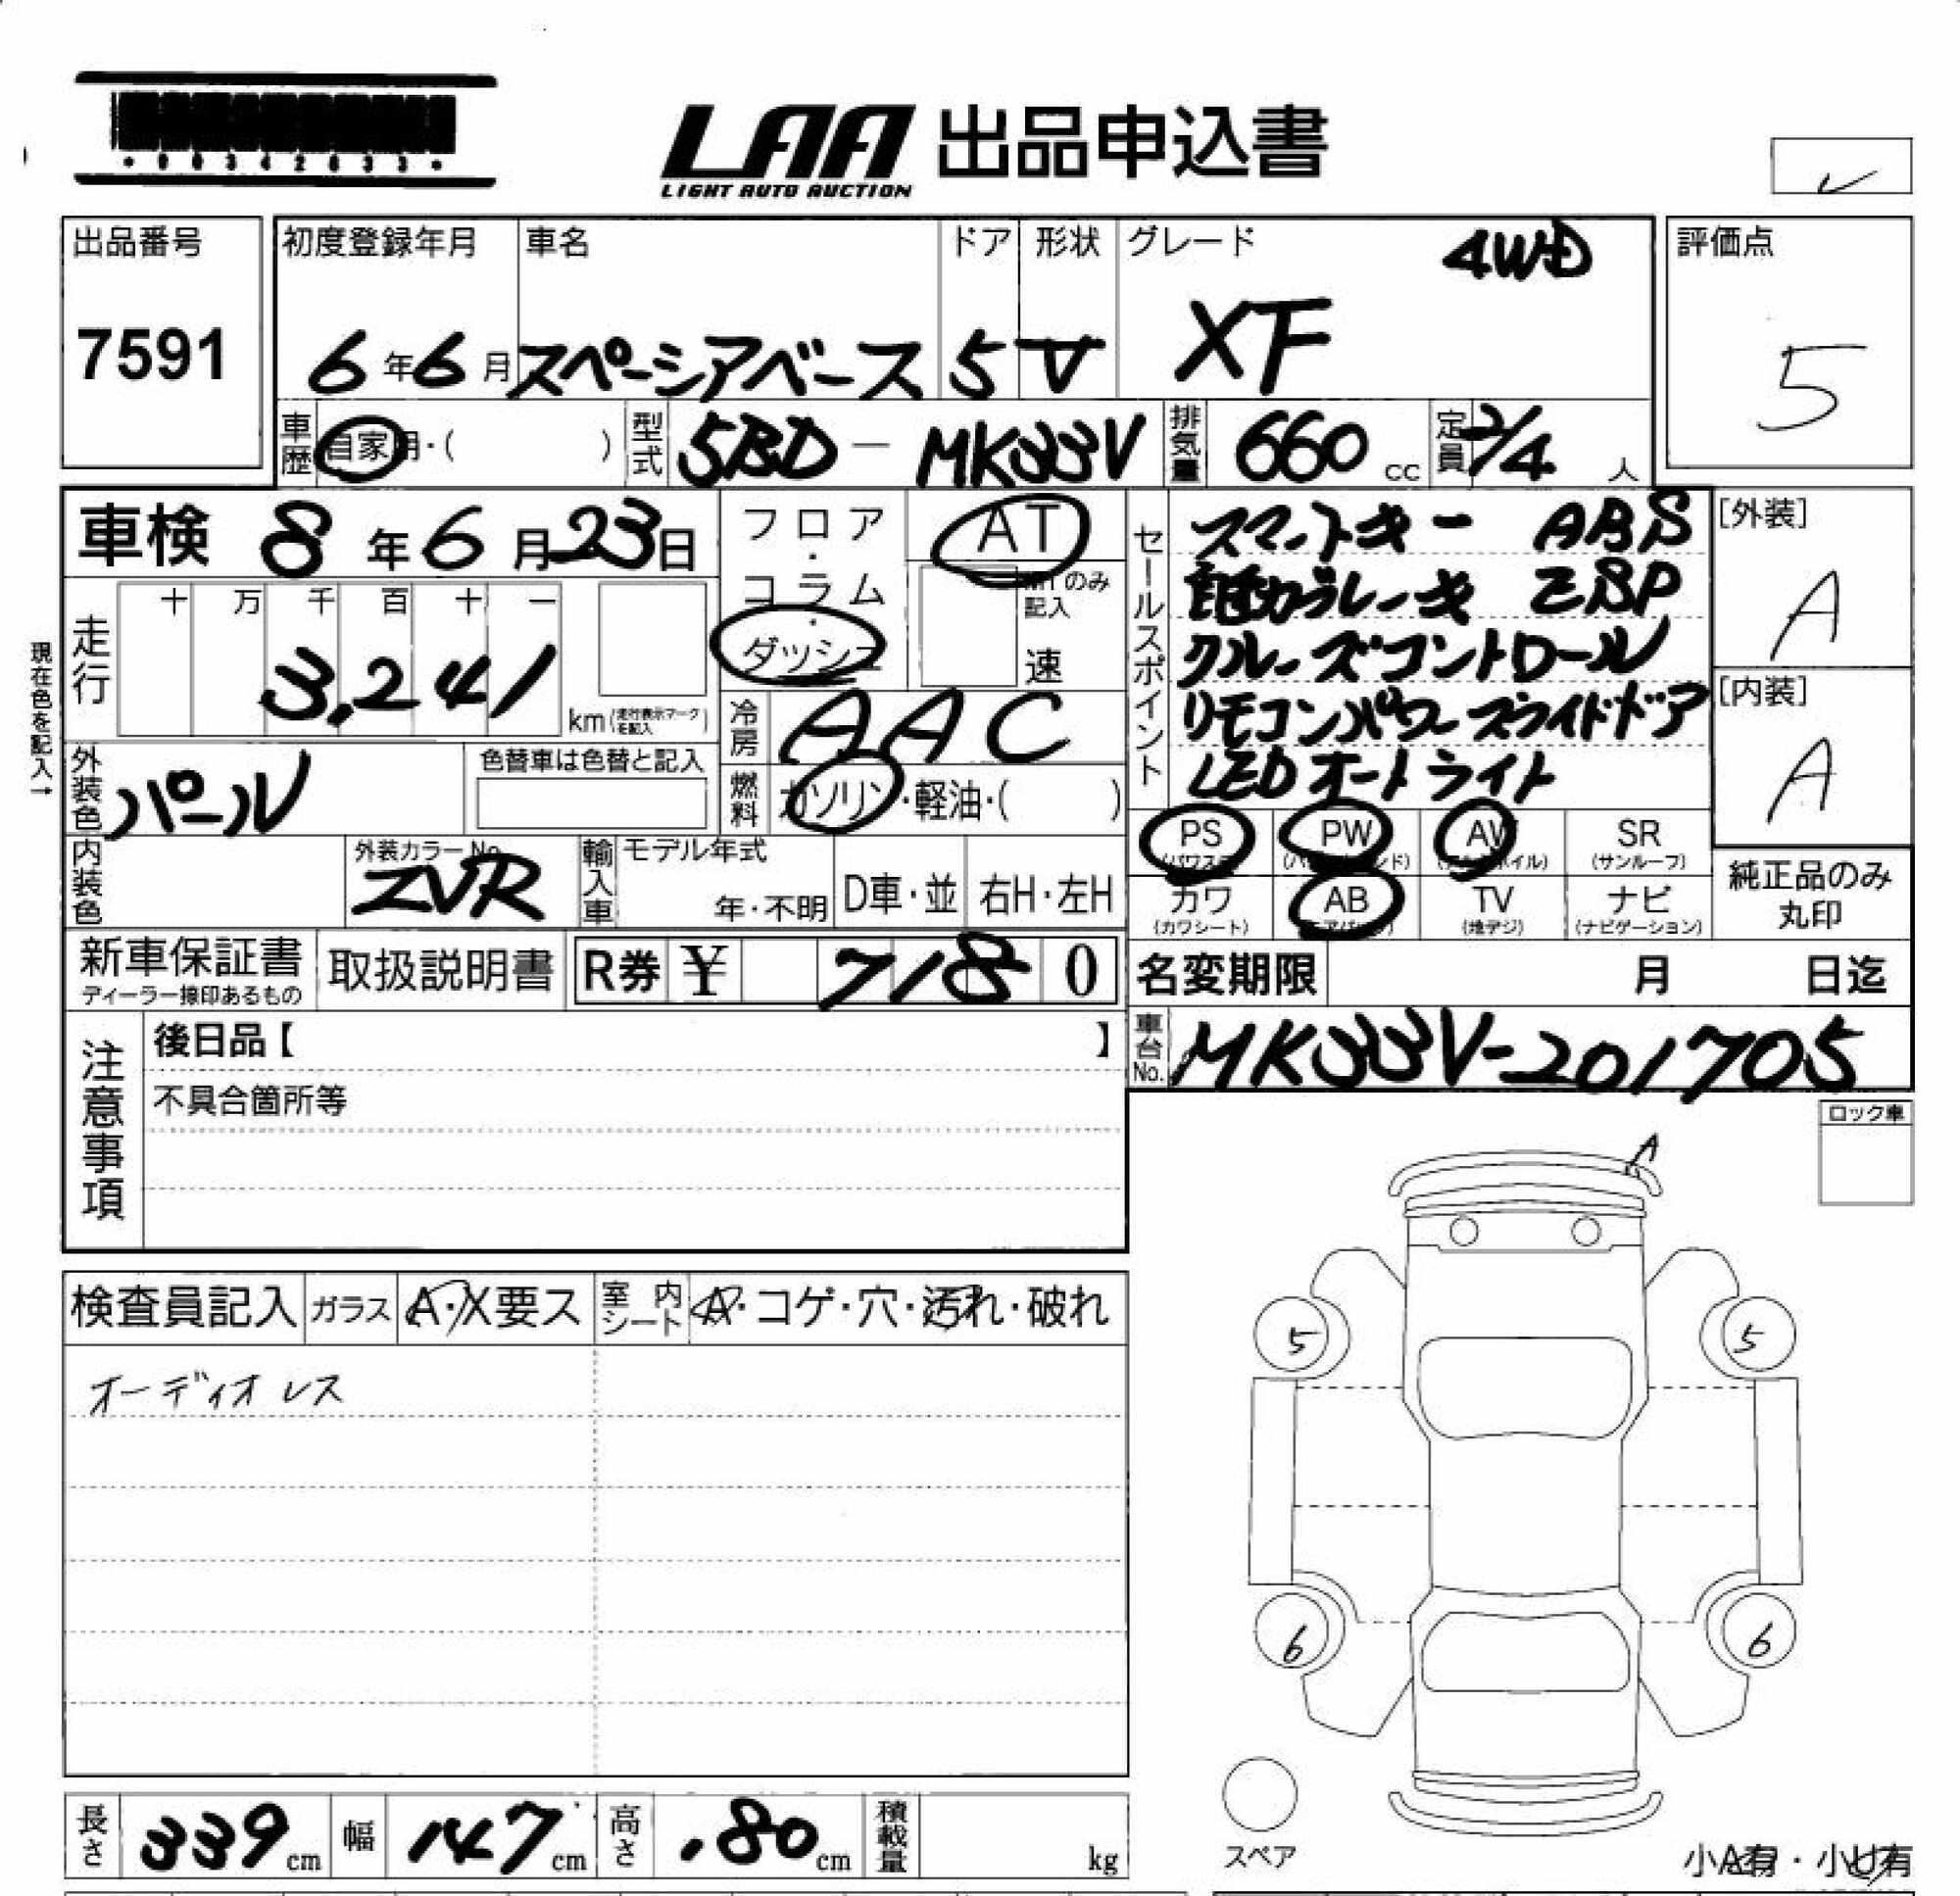 *00342033*
LAA 出品申込書
LIGHT AUTO AUCTION
出品番号 7591
初度登録年月 6年6月
車名 スペーシアベース
ドア 5
形状 V
グレード XF 4WD
評価点 5
車歴 自家用・( )
型式 5BD-MK33V
排気量 660cc
定員 2/4人
車検 8年6月23日
フロア・コラム・ダッシュ
AT
MTのみ記入 速
セールスポイント
スマートキー ABS
自動ブレーキ ESP
クルーズコントロール
リモコンパワースライドドア
LEDオートライト
[外装] A
[内装] A
現在色を記入→
走行 十 万 千 百 十 一
3,241 km(走行表示マークを記入)
冷房 AAC
外装色 パール
色替車は色替と記入
燃料 ガソリン・軽油・( )
内装色
外装カラーNo. ZVR
輸入車 モデル年式 年・不明
D車・並
右H・左H
PS (パワステ)
PW (パワーウインド)
AW (アルミホイル)
SR (サンルーフ)
カワ (カワシート)
AB (エアバッグ)
TV (地デジ)
ナビ (ナビゲーション)
純正品のみ丸印
新車保証書 ディーラー捺印あるもの
取扱説明書
R券 ¥ 7180
名変期限 月 日迄
車台No. MK33V-201705
注意事項
後日品【 】
不具合箇所等
ロック車
A
検査員記入
ガラス A・X要ス
室内シート A・コゲ・穴・汚れ・破れ
オーディオレス
5 5
6 6
スペア
長さ 339cm
幅 147cm
高さ 180cm
積載量 kg
小A有・小U有